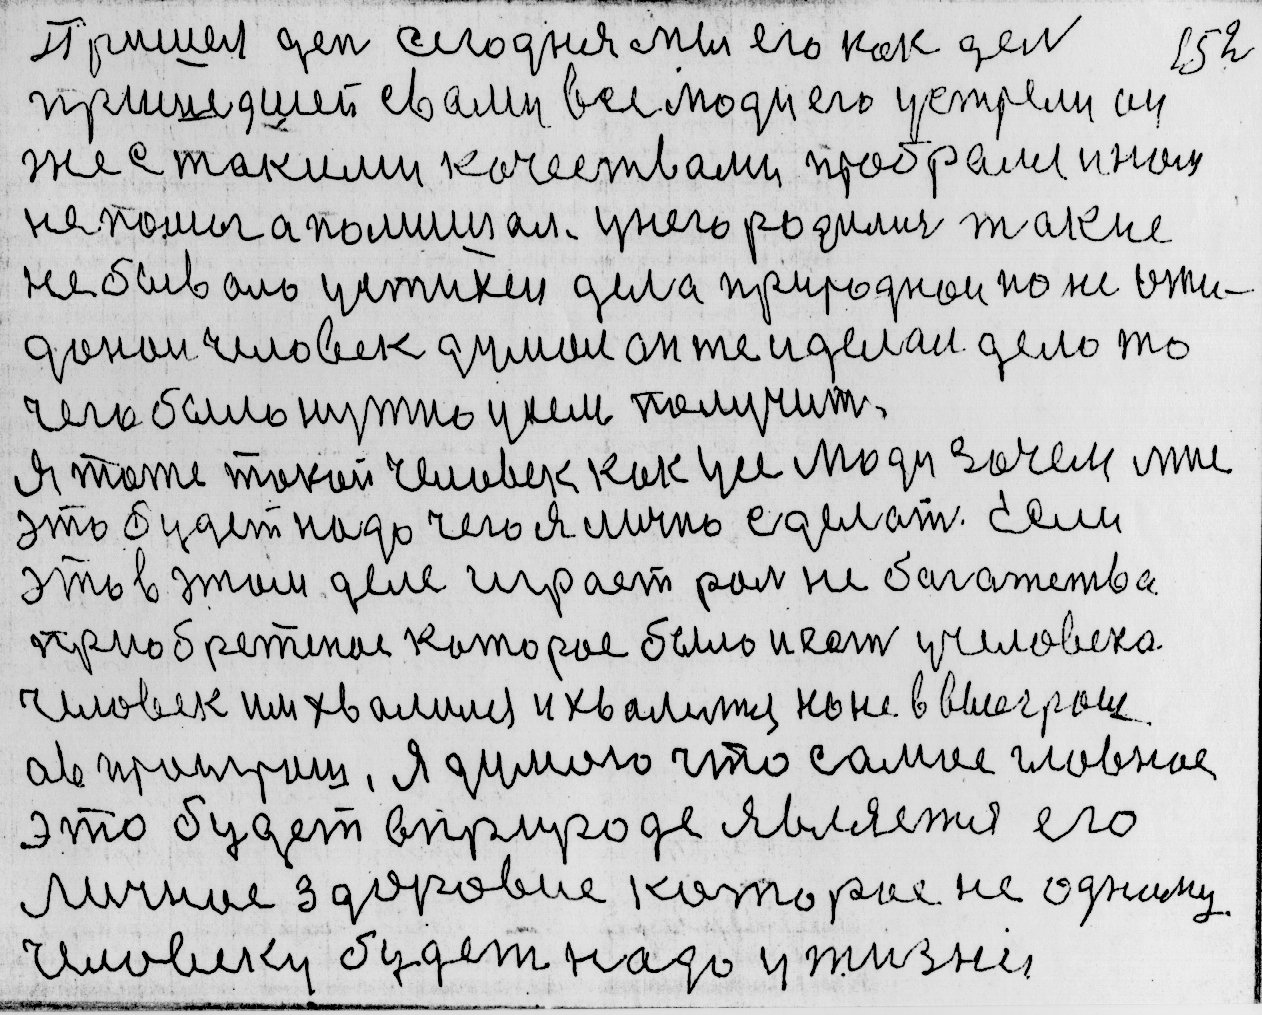 Пришел ден сегодня мы его как ден 152
пришедшей свами все люди его устрели он
же с такими качествами пробрался нам
не помог а помишал. у него родился такие
не бывало устихеи дела природной но не ожи-
даной человек думал он те и делал дело то
чего было нужно у нем получит.
Я тоже такой человек как усе люди зачем мне
это будет надо чего я лично сделат. Если
это в этом деле играет рол не багатства
приобретеное которое было и ест учеловека.
человек им хвалился и хвалится но не в выеграш
а в проиграш, Я думаю что самое главное
это будет вприроде является его
личное здоровие которое не одному
человеку будет надо у жизни